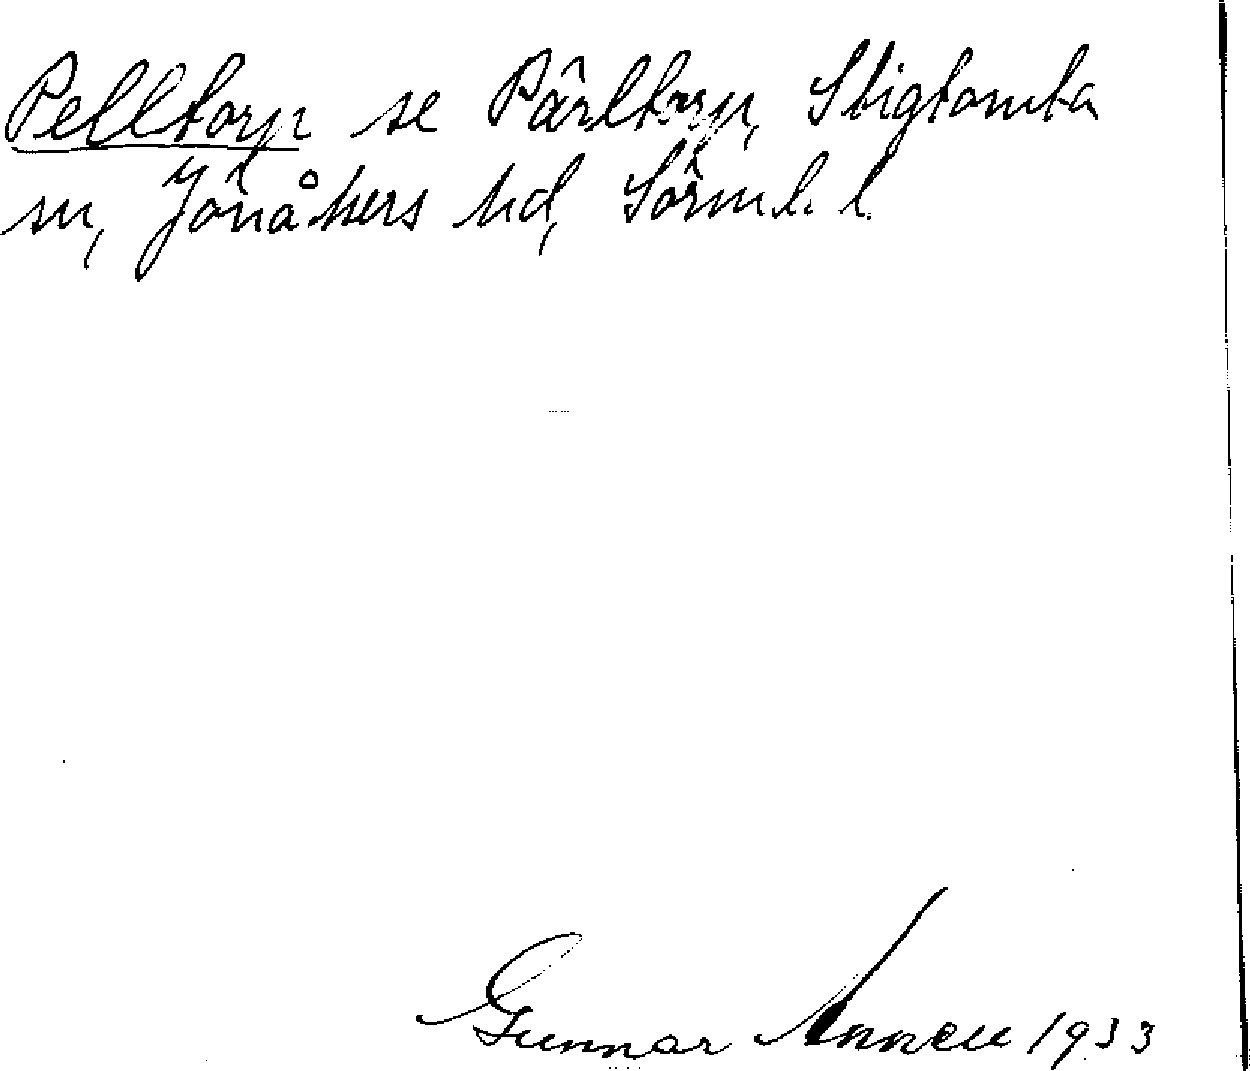 Pelltorp se Pärltorp, Stigtomta
sn, Jönåkers hd, Sörml. l.
Gunnar Annell 1933